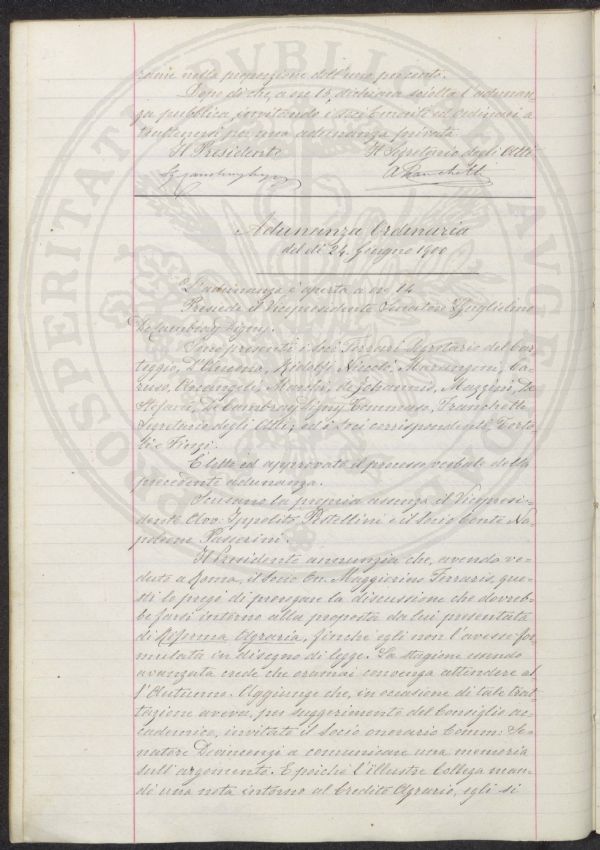 zione nella proporzione dell'uno per cento.
Dopo di che, a ore 15, dichiara sciolta l'adunan-
za pubblica, invitando i soci Emeriti ed Ordinari a
trattenersi per una adunanza privata.
Il Presidente Il Segretario degli Atti
A Franchetti
Adunanza Ordinaria
del dì 24 Giugno 1900
L'adunanza è aperta a ore 14
Presiede il Vicepresidente Senatore Guglielmo
De Cambray Digny.
Sono presenti i Soci Ferrari Segretario del Car-
teggio, D'Ancona, Ridolfi Niccolò, Marangoni, Ca-
ruso, Arcangeli, Marchi, de Johannis, Mazzini, De
Stefani, De Cambray Digny Tommaso, Franchetti
Segretario degli Atti, ed i Soci corrispondenti Berto-
li e Finzi.
È letto ed approvato il processo verbale della
precedente adunanza.
Scusano la propria assenza il Vicepresi-
dente Avv. Ippolito Pestellini e il Socio Conte Na-
poleone Passerini.
Il Presidente annunzia che, avendo ve-
duto a Roma, il Socio On. Maggiorino Ferraris, que-
sti lo pregò di prorogare la discussione che dovreb-
be farsi intorno alla proposta da lui presentata
di Riforma Agraria, finchè egli non l'avesse for-
mulata in disegno di legge. La stagione essendo
avanzata crede che oramai convenga attendere al-
l'Autunno. Aggiunge che, in occasione di tale trat-
tazione aveva, per suggerimento del Consiglio ac-
cademico, invitato il socio onorario Comm. Se-
natore Devincenzi a comunicare una memoria
sull'argomento. E poichè l'illustre Collega man-
dò una nota intorno al Credito Agrario, egli si
PROSPERITATI PVBLICAE AVGENDAE